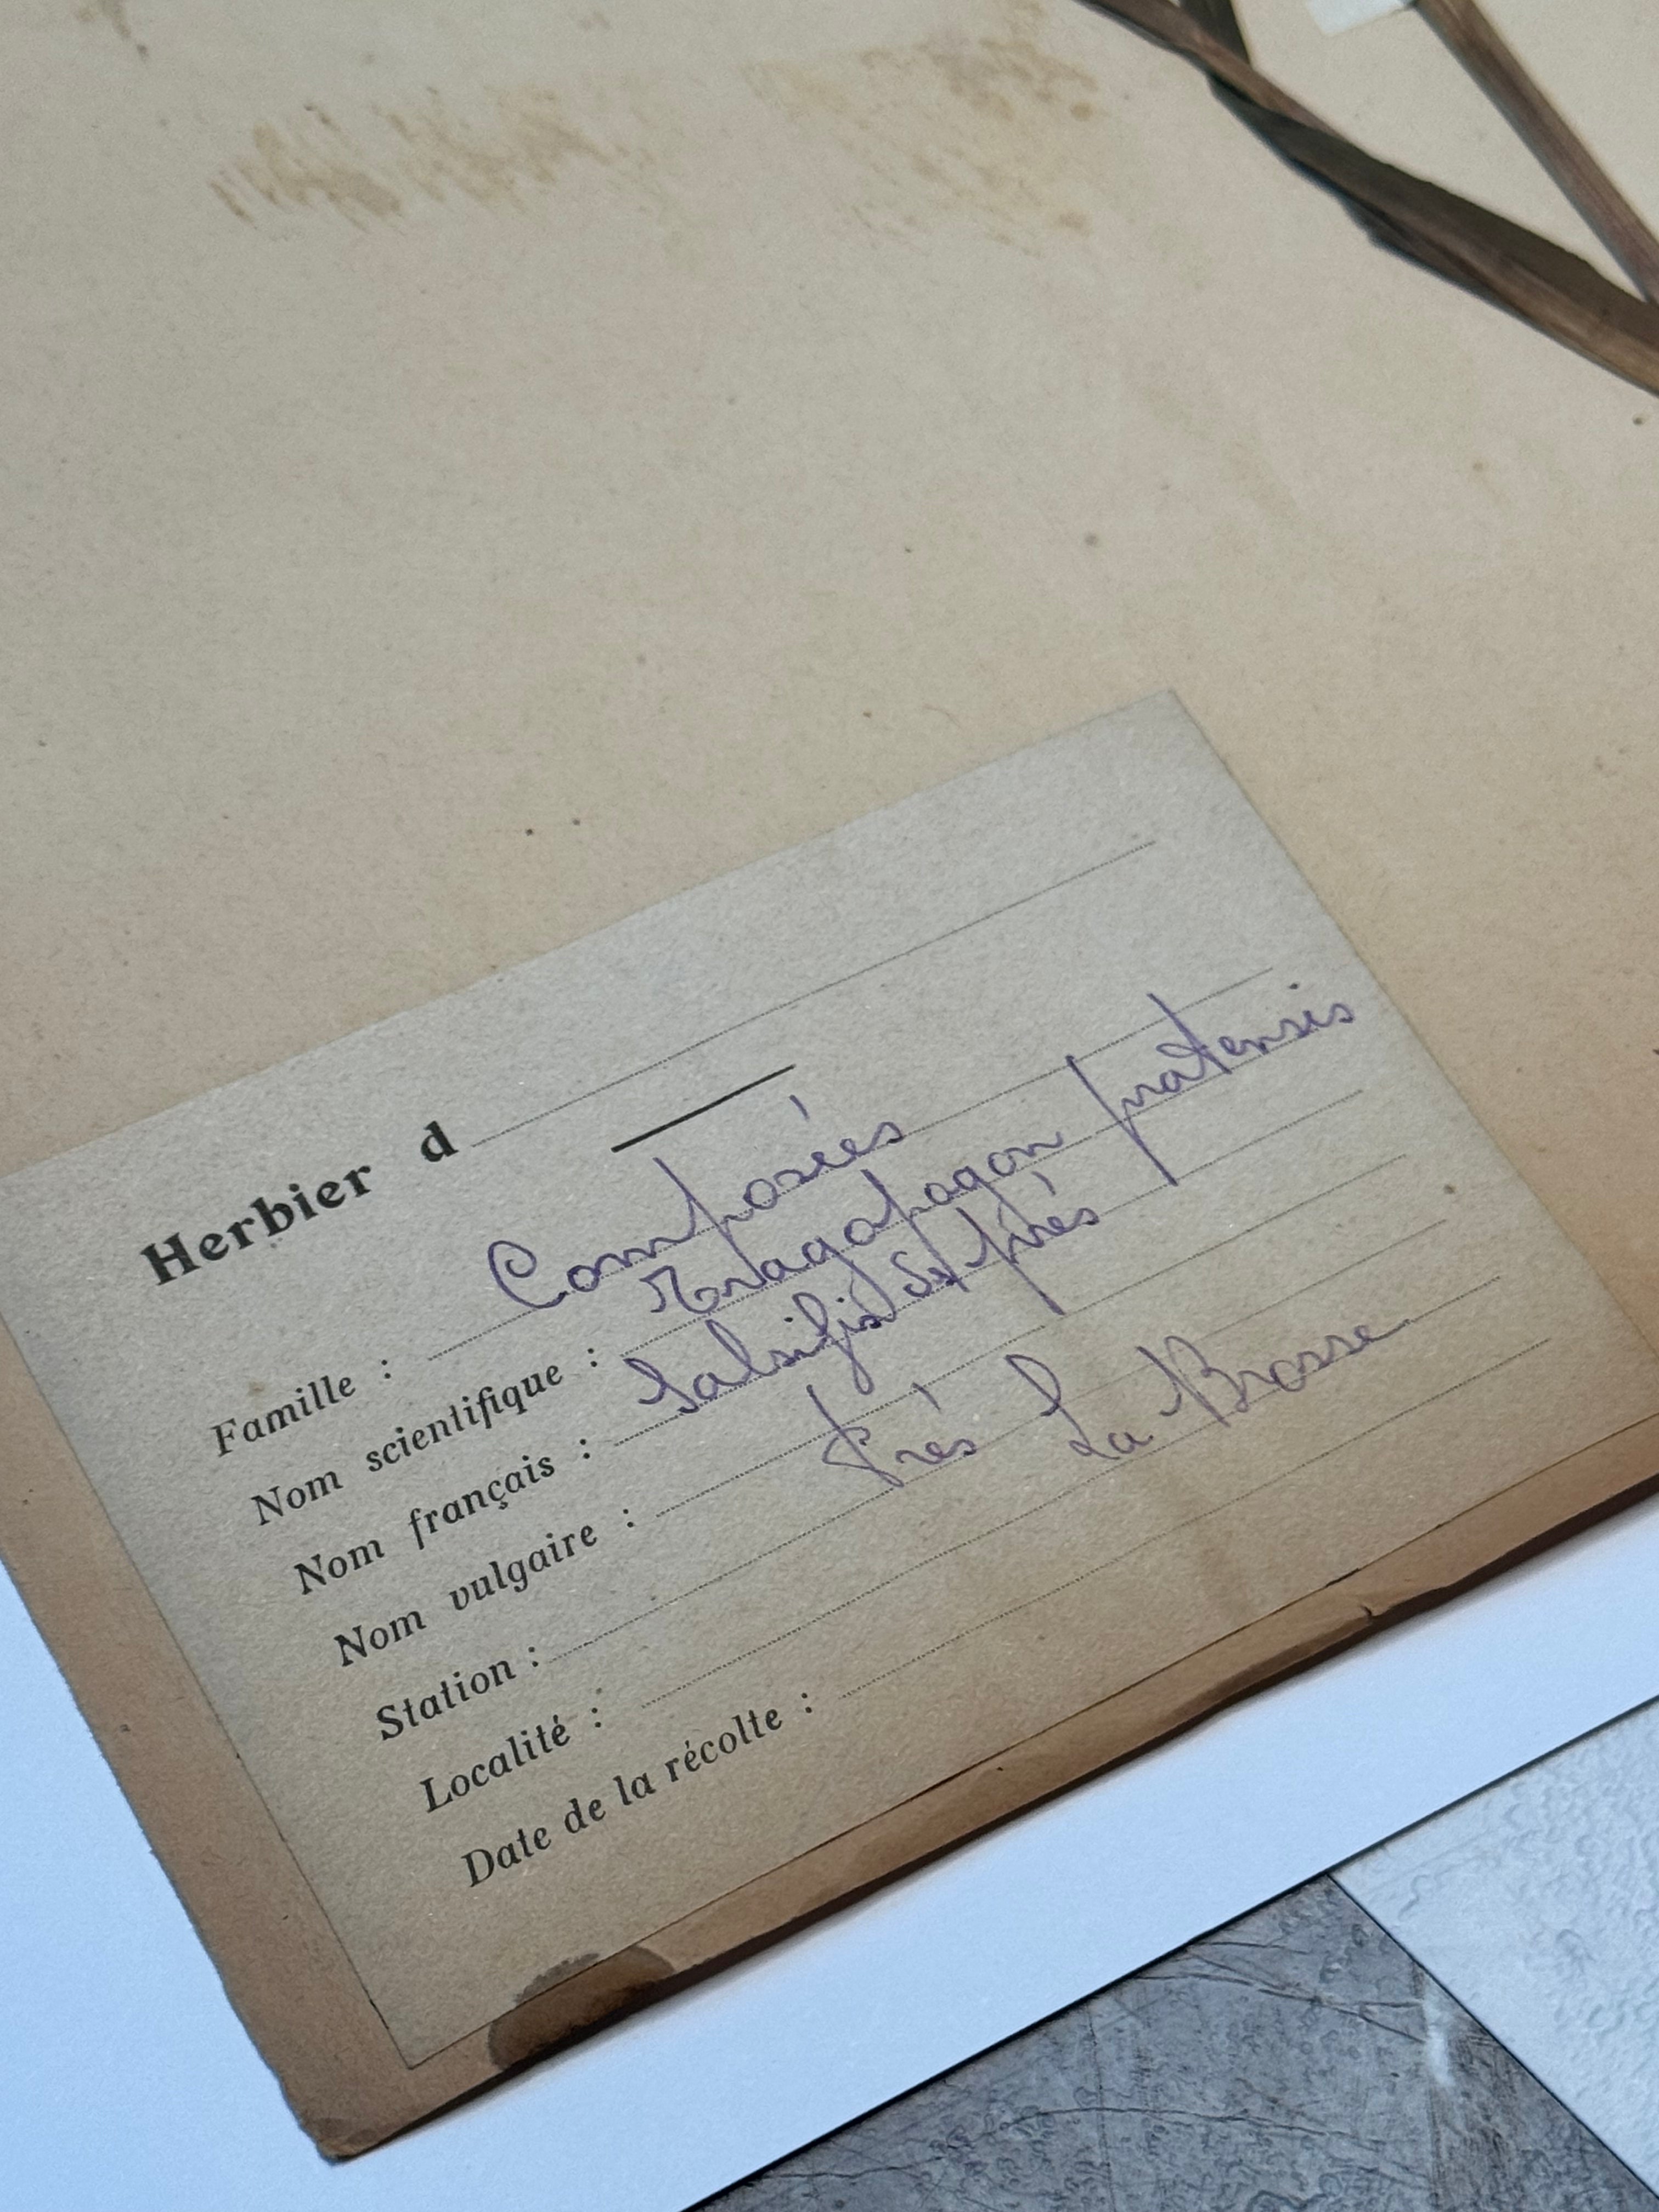 Herbier d
Famille : Composées
Nom scientifique : Tragopogon pratensis
Nom français : Salsifis des prés
Nom vulgaire :
Station : Prés
Localité : La Brosse
Date de la récolte :